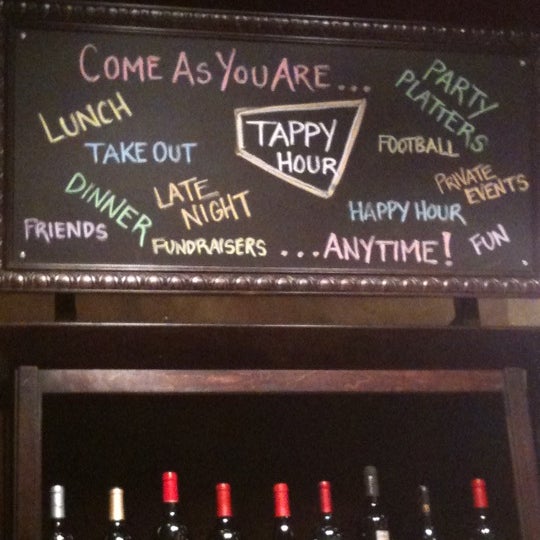 COME AS YOU ARE...
LUNCH
TAKE OUT
DINNER
LATE
NIGHT
FRIENDS
FUNDRAISERS
TAPPY
HOUR
PARTY
PLATTERS
FOOTBALL
PRIVATE
EVENTS
HAPPY HOUR
...ANYTIME!
FUN